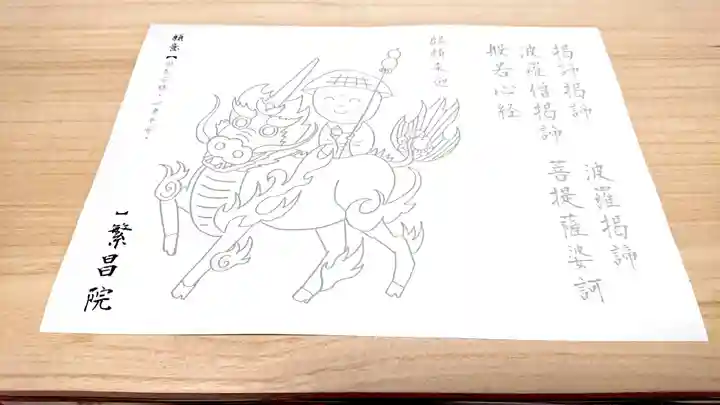 掲諦掲諦
波羅掲諦
波羅僧掲諦
菩提薩婆訶
般若心経
願意【
【繁昌院